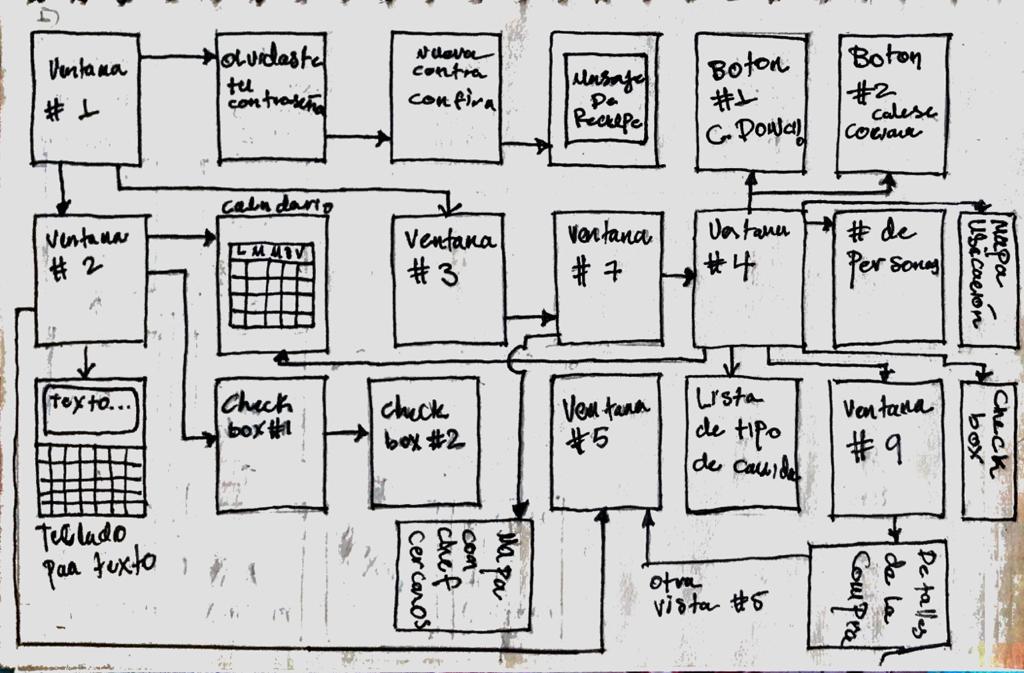 1)
Ventana
# 1
olvidaste
tu
contraseña
nueva
contra
confira
Mensaje
De
Recupe
Boton
#1
C. Domici
Boton
#2
Ventana
# 2
calendario
L M M J V
Ventana
#3
Ventana
# 7
Ventana
#4
# de
Personas
Mapa
Ubicación
Texto...
Teclado
para texto
Check
box #1
Check
box #2
Ventana
#5
Lista
de tipo
de comida
Ventana
# 9
Check
box
Mapa
con
chef
cercanos
otra
vista #5
Detalles
de la
Compra